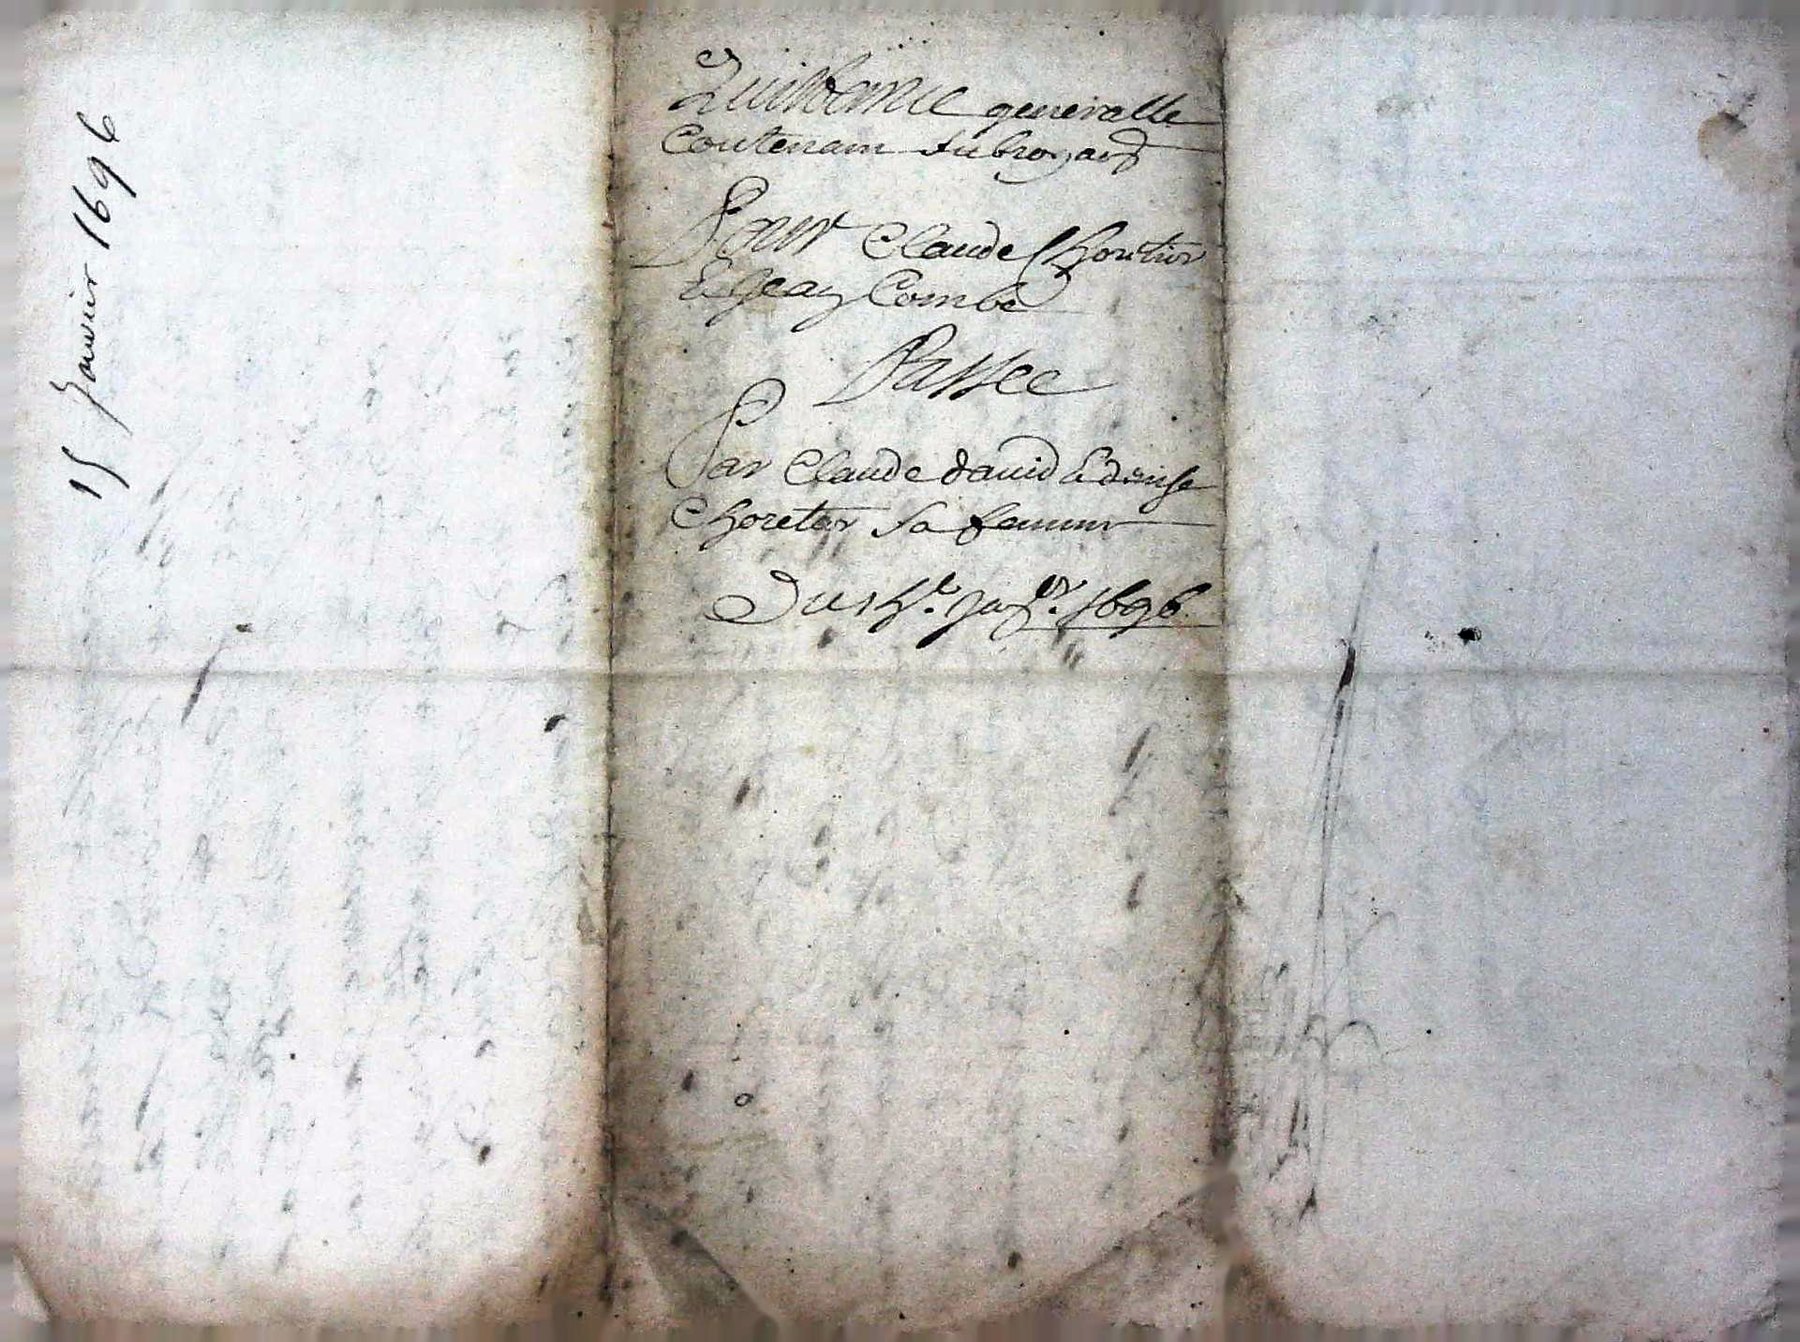 15 Janvier 1696
Quittance generalle
Contenant subrogaōn
Pour Claude Choretier
& Jean Combe
Passee
Par Claude david & denise
Choretier sa femme
Du 15e. Jaer. 1696